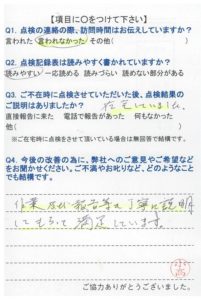 【項目に○をつけて下さい】
Q1. 点検の連絡の際、訪問時間はお伝えしていますか?
言われた 言われなかった その他( )
Q2. 点検記録表は読みやすく書かれていますか?
読みやすい 一応読める 読みづらい 読めない部分がある
Q3. ご不在時に点検させていただいた後、点検結果の
ご説明はありましたか? 在宅していました。
直接報告に来た 電話で報告があった 何もなかった
他( )
※ご在宅時に点検をさせて頂いている場合は無回答で結構です。
Q4. 今後の改善の為に、弊社へのご意見やご希望など
をお聞かせください。ご不満やお叱りなど、どのようなこと
でも結構です。
作業及び報告等の丁寧に説明
してもらって満足しています。
ご協力ありがとうございました。